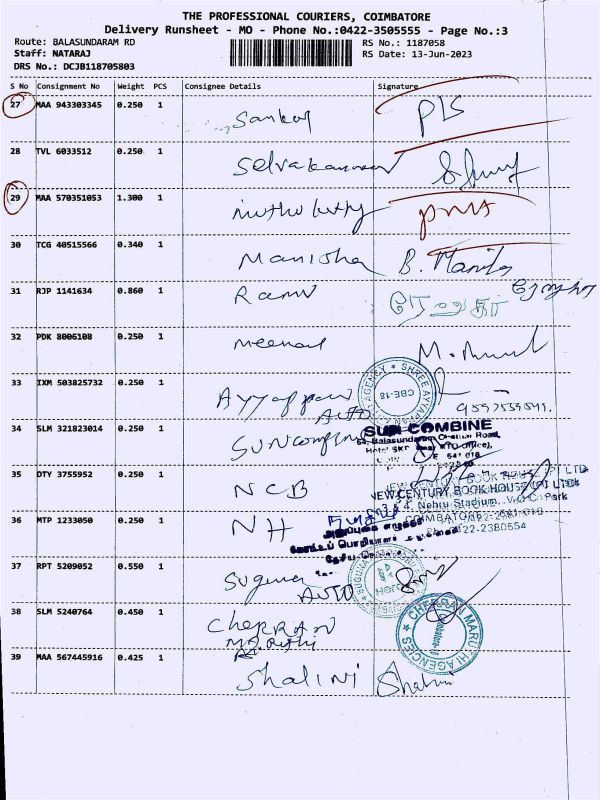 THE PROFESSIONAL COURIERS, COIMBATORE
Delivery Runsheet - MO - Phone No.:0422-3505555 - Page No.:3
Route: BALASUNDARAM RD
RS No.: 1187058
Staff: NATARAJ
RS Date: 13-Jun-2023
DRS No.: DCJB118705803
S No Consignment No Weight PCS Consignee Details Signature
27 MAA 943303345 0.250 1 Sankar PLS
28 TVL 6033512 0.250 1
29 MAA 570351053 1.300 1
30 TCG 40515566 0.340 1 Manisha B.
31 RJP 1141634 0.860 1 Ramu
32 PDK 8006108 0.250 1 M.
33 IXM 503825732 0.250 1 Ayyappan
AUTO
SHREE AYYAPPAN AGENCY
CBE-18
34 SLM 321823014 0.250 1
SUN COMBINE
64, Balasundaram Chettiar Road,
35 DTY 3755952 0.250 1 NCB
NEW CENTURY BOOK HOUSE (P) LTD
3, 4, Nehru Stadium, V.O.C. Park
COIMBATORE - 641 018
Ph: 0422-2380554
36 MTP 1233050 0.250 1 NH
37 RPT 5209052 0.550 1 Suguna
AUTO
38 SLM 5240764 0.450 1 Cherran
Maruthi
CHERRAN MARUTHI AGENCIES
39 MAA 567445916 0.425 1 Shalini Shalini